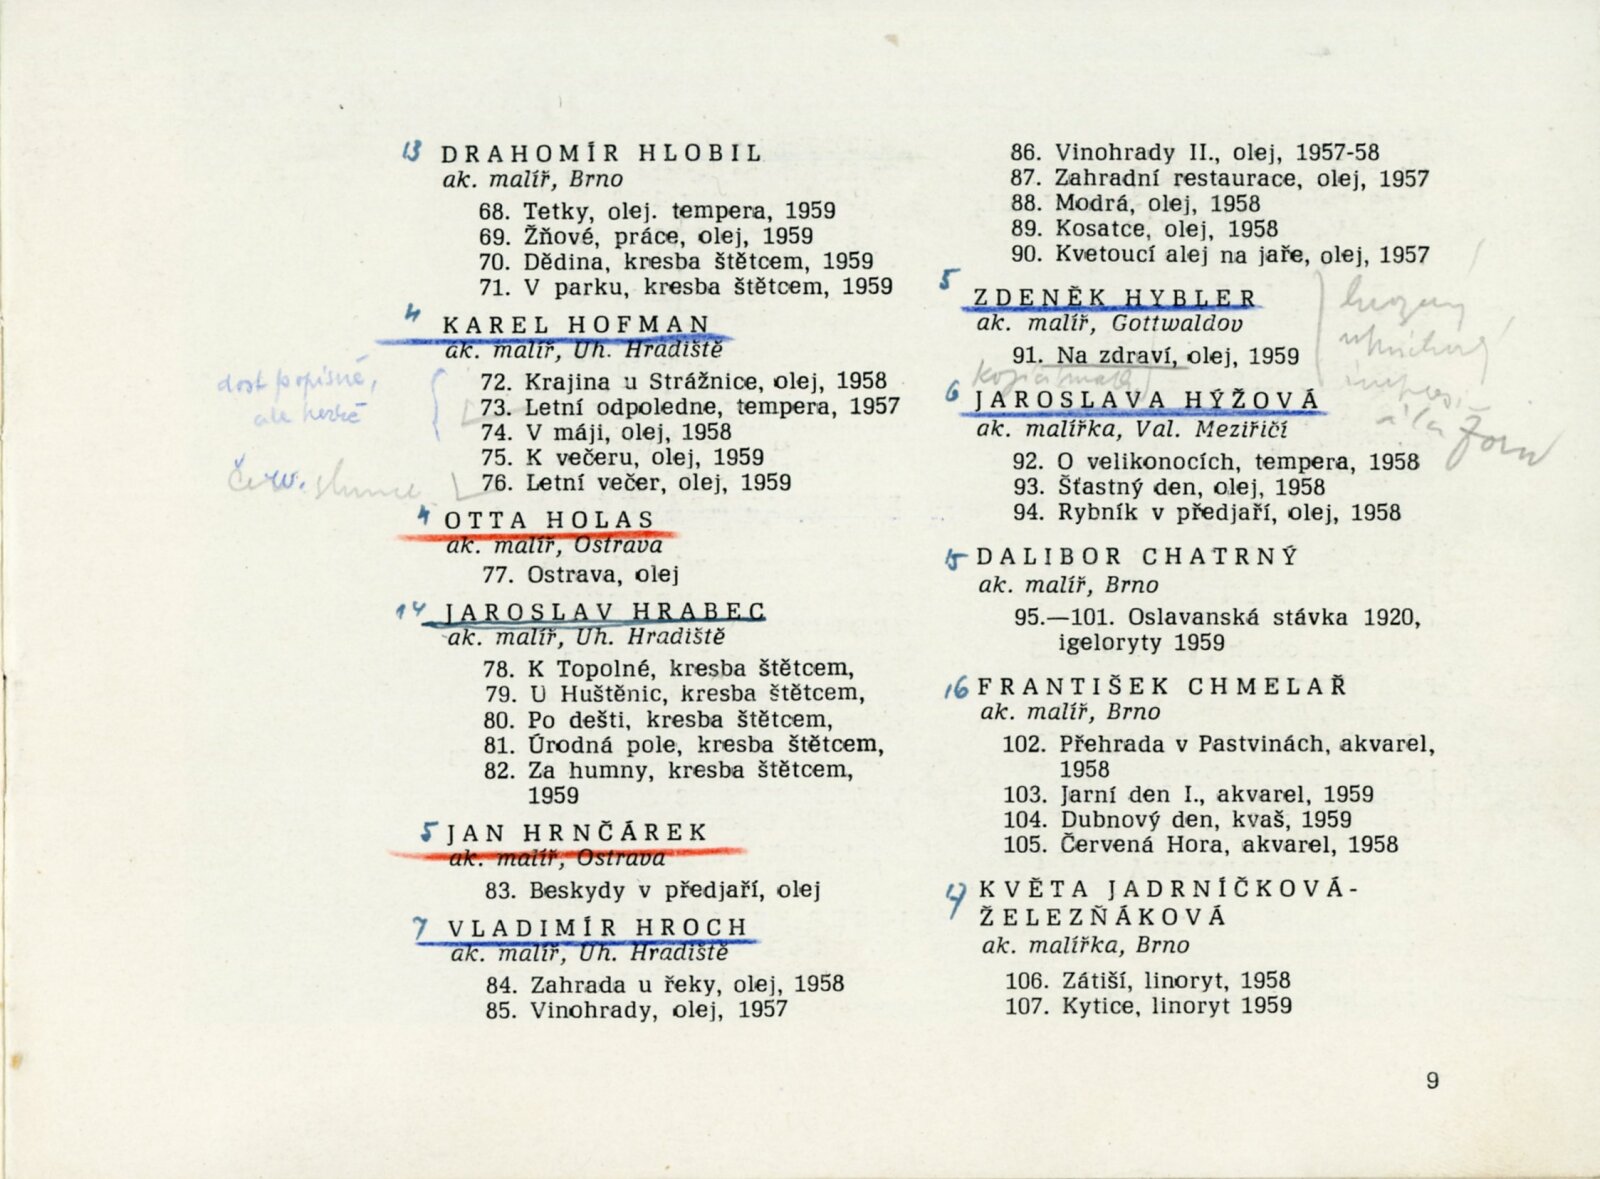 13 DRAHOMÍR HLOBIL
ak. malíř, Brno
68. Tetky, olej. tempera, 1959
69. Žňové, práce, olej, 1959
70. Dědina, kresba štětcem, 1959
71. V parku, kresba štětcem, 1959
4 KAREL HOFMAN
ak. malíř, Uh. Hradiště
dost popisné,
ale hezké
72. Krajina u Strážnice, olej, 1958
73. Letní odpoledne, tempera, 1957
74. V máji, olej, 1958
75. K večeru, olej, 1959
červ. slunce
76. Letní večer, olej, 1959
4 OTTA HOLAS
ak. malíř, Ostrava
77. Ostrava, olej
14 JAROSLAV HRABEC
ak. malíř, Uh. Hradiště
78. K Topolné, kresba štětcem,
79. U Huštěnic, kresba štětcem,
80. Po dešti, kresba štětcem,
81. Úrodná pole, kresba štětcem,
82. Za humny, kresba štětcem,
1959
5 JAN HRNČÁREK
ak. malíř, Ostrava
83. Beskydy v předjaří, olej
7 VLADIMÍR HROCH
ak. malíř, Uh. Hradiště
84. Zahrada u řeky, olej, 1958
85. Vinohrady, olej, 1957
86. Vinohrady II., olej, 1957-58
87. Zahradní restaurace, olej, 1957
88. Modrá, olej, 1958
89. Kosatce, olej, 1958
90. Kvetoucí alej na jaře, olej, 1957
5 ZDENĚK HYBLER
ak. malíř, Gottwaldov
91. Na zdraví, olej, 1959
6 JAROSLAVA HÝŽOVÁ
ak. malířka, Val. Meziříčí
92. O velikonocích, tempera, 1958
93. Šťastný den, olej, 1958
94. Rybník v předjaří, olej, 1958
15 DALIBOR CHATRNÝ
ak. malíř, Brno
95.—101. Oslavanská stávka 1920,
igeloryty 1959
16 FRANTIŠEK CHMELAŘ
ak. malíř, Brno
102. Přehrada v Pastvinách, akvarel,
1958
103. Jarní den I., akvarel, 1959
104. Dubnový den, kvaš, 1959
105. Červená Hora, akvarel, 1958
17 KVĚTA JADRNÍČKOVÁ-
ŽELEZŇÁKOVÁ
ak. malířka, Brno
106. Zátiší, linoryt, 1958
107. Kytice, linoryt 1959
9